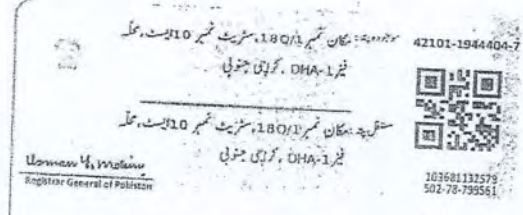 موجودہ پتہ: مکان نمبر 18Q/1، سٹریٹ نمبر 10ایسٹ، محلہ
فیز DHA-1، کراچی جنوبی
42101-1944404-7
مستقل پتہ: مکان نمبر 18Q/1، سٹریٹ نمبر 10ایسٹ، محلہ
فیز DHA-1، کراچی جنوبی
Usman Y. Mobin
Registrar General of Pakistan
103681132579
502-78-799561